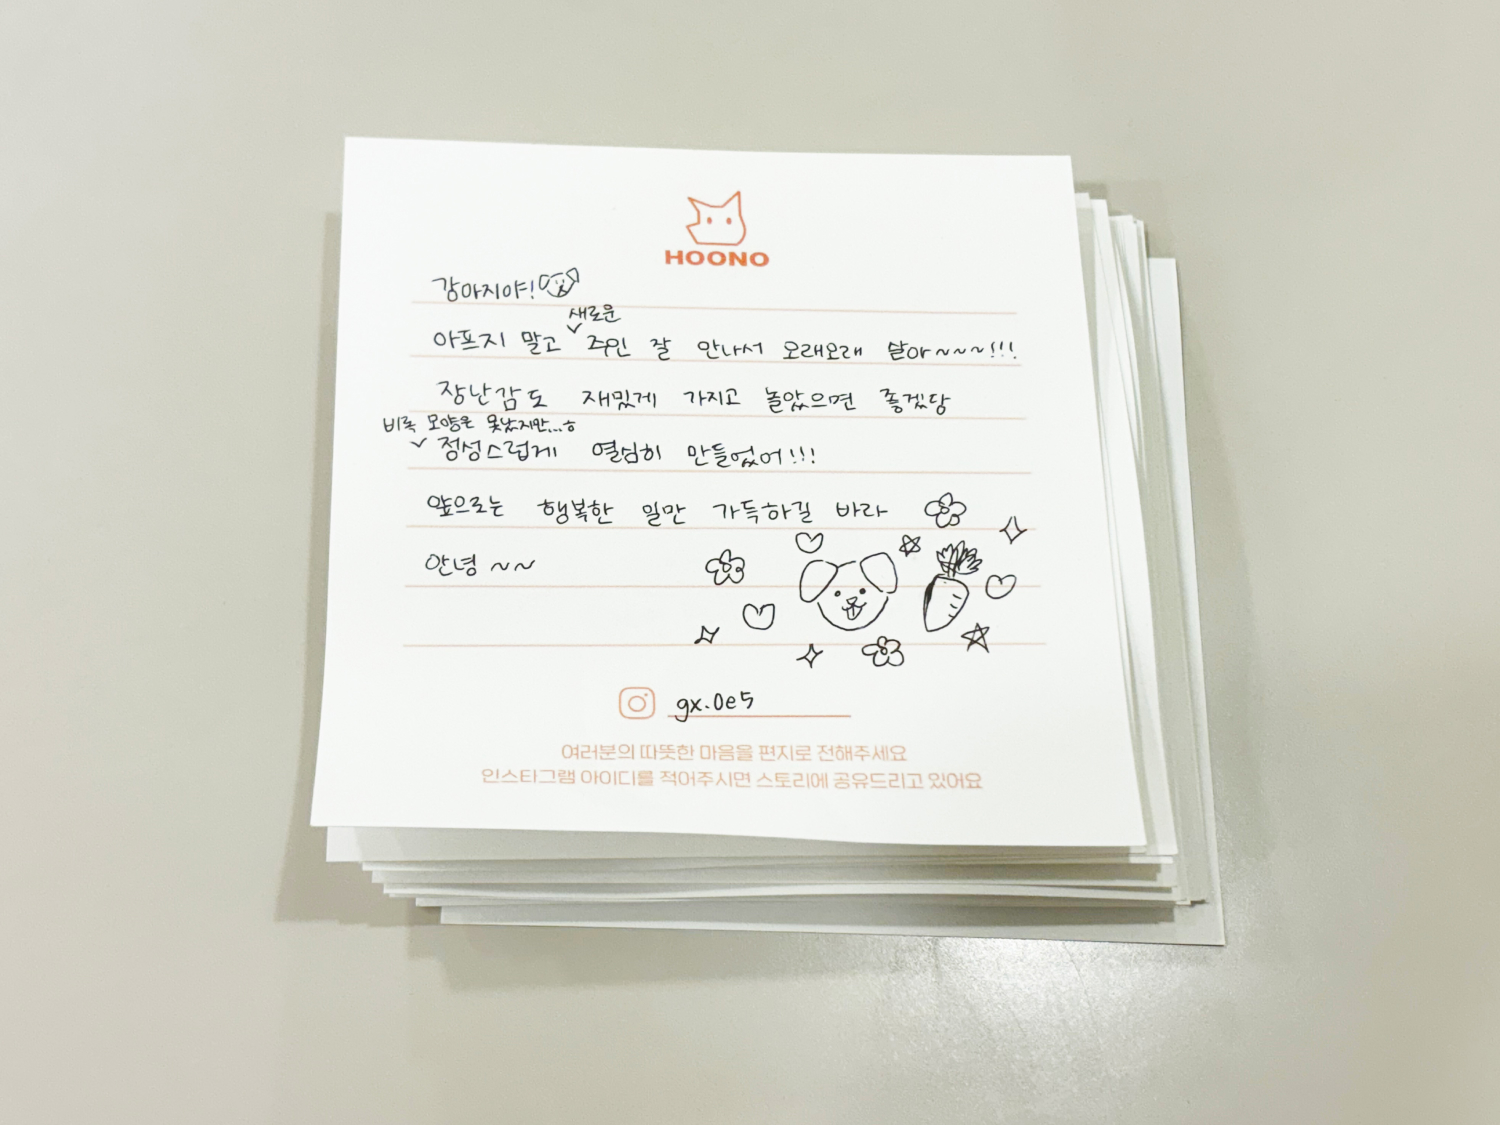 HOONO
강아지야!
새로운
아프지 말고 주인 잘 만나서 오래오래 살아~~~!!!
장난감도 재밌게 가지고 놀았으면 좋겠당
비록 모양은 못났지만...ㅎ
정성스럽게 열심히 만들었어!!!
앞으로는 행복한 일만 가득하길 바라
안녕~~
gx.0e5
여러분의 따뜻한 마음을 편지로 전해주세요
인스타그램 아이디를 적어주시면 스토리에 공유드리고 있어요